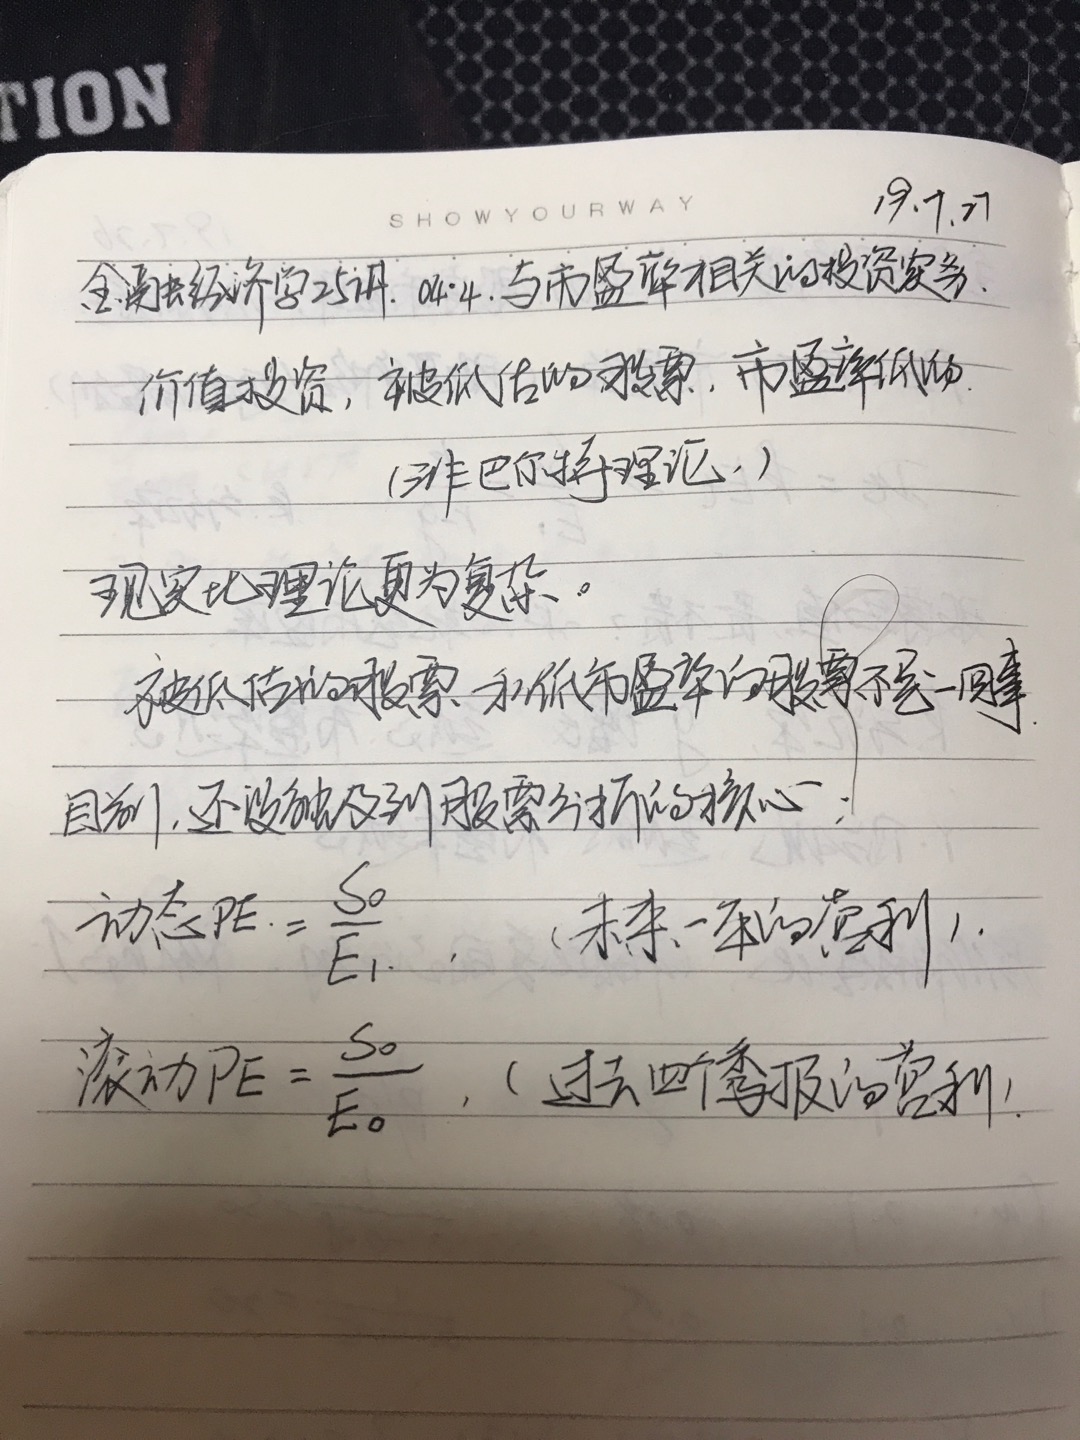 TION
SHOWYOURWAY
19.7.27
金融经济学25讲. 04.4. 与市盈率相关的投资实务.
价值投资, 被低估的股票, 市盈率低的.
(非巴尔特理论.)
现实比理论更为复杂。
被低估的股票和低市盈率的股票不是一回事.
目前, 还没触及到股票分析的核心;
动态PE. = S₀/E₁. , (未来一年的营利).
滚动PE = S₀/E₀ , (过去四个季报的营利).